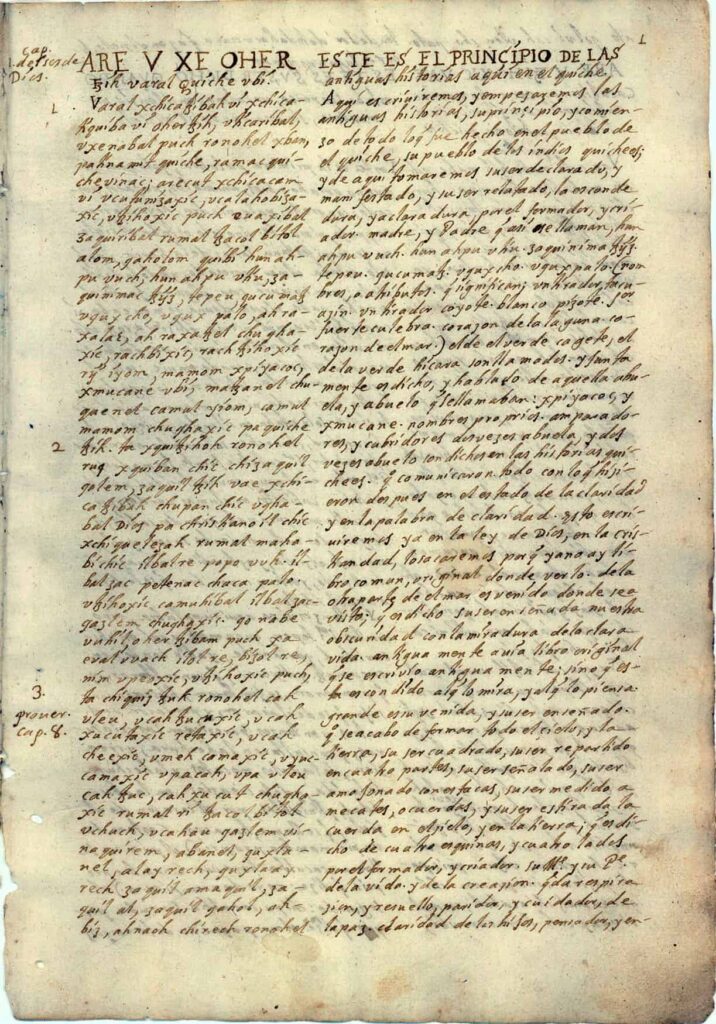 1
Cap.
1. del ser de
Dios.
ARE V XE OHER
ꜩih varal quiche vbi.
1
Varal xchicaꜩibah vi xchica-
ꜩiquiba vi oher ꜩih, vticaribal,
vxenabal puch ronohel xban
pa tinamit quiche, ramac qui-
che vinac; arecut xchicacam
vi vcutunizaxic, vcalahobiza-
xic, vꜩihoxic puch euaxibal
zaquiribal rumal tzacol bitol
alom, qaholom quibi hun ah-
pu vuch, hun ahpu vtiu, za-
quinimac tzyz, tepeu, qucumatz
vqux cho, vqux palo, ah ra-
xalaq, ah raxatzel chugha-
xic, rachbixic, rachꜩihoxic
rij iyom, mamom xpiyacoc,
xmucane vbi, matzanel chu-
quenel camul yiom, camul
mamom chughaxic pa quiche
ꜩih.
2
ta xquiꜩihoh ronohel
ruq xquiban chic chi zaquil
qolem, zaquil ꜩih vae xchi-
caꜩibah chupan chic vgha-
bal Dios pa christianoil chic
xchiquelezah rumal maha-
bi chic ilbal re popo vuh. il-
bal zac petenac chaca palo.
vꜩihoxic camuhibal ilbal zac-
qazlem chughaxic. qo nabe
vuhil, oher ꜩibam puch xa
eval vvach ilol re, bizol re,
nim vpeoxic, vꜩihoxic puch,
3.
prover.
Cap. 8.
ta chiquiz tzuk ronohel cah
vleu, vcah tzucuxic, vcah
xucutaxic retaxic, vcah
cheexic, vmeh camaxic, vyuc-
camaxic vpa cah, vpa vleu
cah tzuc, cah xucut chugha-
xic rumal ri tzacol bitol
vchuch, vcahau qazlem vi-
naquirem, abanel, quxla-
nel, alay rech, quxlaay
rech zaquil amaquil, za-
quil al, zaquil qahol, ah-
biz, ahnaoh chirech ronohel
ESTE ES EL PRINCIPIO DE LAS
antiguas historias aqui en el quiche.
Aqui escriviremos, y empezaremos las
antiguas historias, su principio, y comien-
zo de todo lo q̃ fue hecho en el pueblo de
el quiche, su pueblo de los indios quichees;
y de aqui tomaremos su ser declarado, y
manifestado, y su ser relatado, la esconde
dura, y aclaradura, por el formador, y cri-
ador. madre, y Padre q̃ asi se llaman, hun
ahpu vuch. hun ahpu vtiu. zaquinima tzyz.
tepeu. qucumatz. vqux cho. vqux palo. (nom
bres, o atributos. q̃ significan; vn tirador tacu-
azin. vn tirador coyote. blanco pizote. sor
fuerte culebra. corazon de la laguna. co-
razon de el mar.) el de el verde cagete, el
de la verde hicara son llamados. y junta
mente es dicho, y hablado de aquella abu-
ela, y abuelo q̃ se llamaban: xpiyacoc, y
xmucane. nombres proprios. amparado-
res, y cubridores dos vezes abuela, y dos
vezes abuelo son dichos en las historias qui-
chees. q̃ comunicaron todo con lo q̃ hizi-
eron despues en el estado de la claridad
y en la palabra de claridad. Esto escri-
viremos ya en la ley de Dios, en la cris-
tiandad, lo sacaremos por q̃ ya no ay li-
bro comun, original donde verlo. de la
otra parte de el mar es venido donde se a
visto; y es dicho su ser enseñada nuestra
obscuridad con la miradura de la clara
vida. antiguamente avia libro original
q̃ se escrivio antiguamente; sino q̃ es-
ta escondido al q̃ lo mira, y al q̃ lo piensa.
grande es su venida, y su ser enseñado.
q̃ se acabo de formar todo el cielo, y la
tierra, su ser cuadrado, su ser repartido
en cuatro partes, su ser señalado, su ser
amojonado con estacas, su ser medido, a
mecates, o cuerdas, y su ser estirada la
cuerda en el zielo, y en la tierra; q̃ es di-
cho de cuatro esquinas, y cuatro lados
por el formador, y criador. su Me. y su Pe.
de la vida. y de la creazion. q̃ da respira-
zion, y resuello, paridor, y cuidador, de
la paz. claridad de los hijos, pensador, y en-